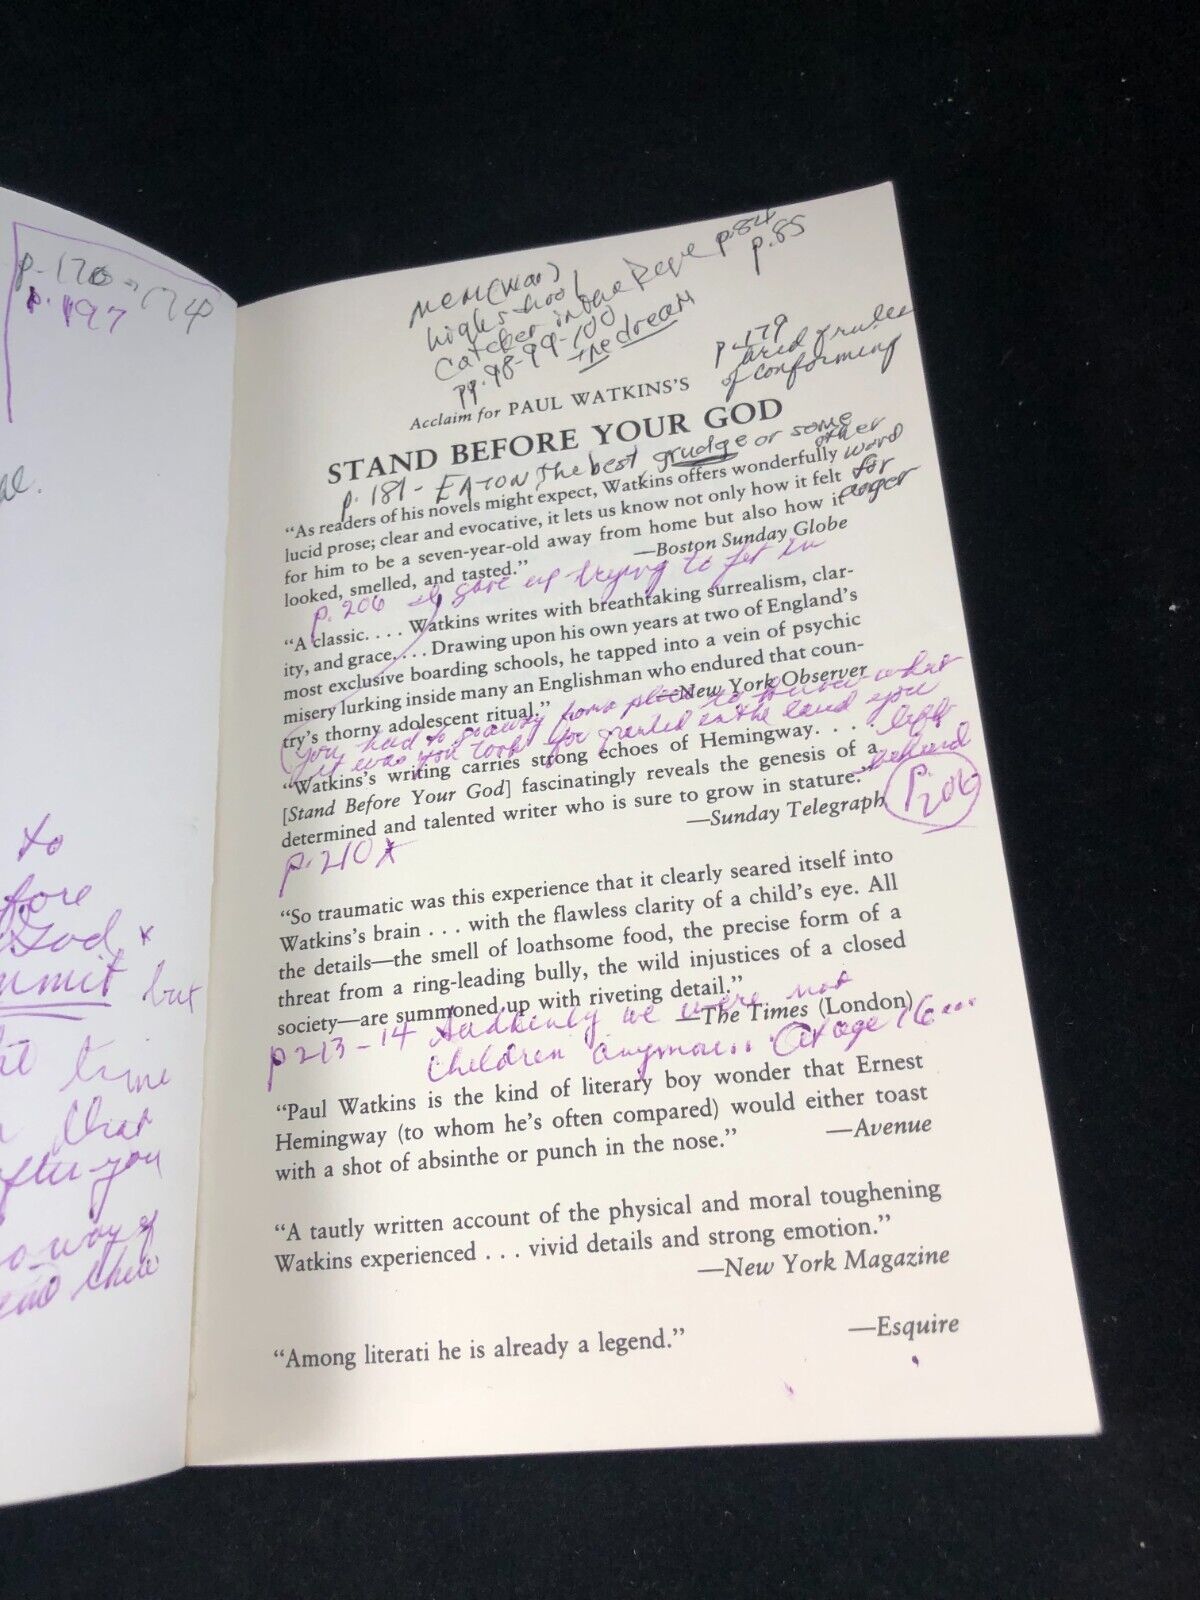 p. 170 → 174
p. 197
to
fore
God, *
ummit but
time
that
after you
way of
there
p. 84
p. 85
high school
Catcher in the
pp. 98-99-100
the dream
p. 179
tired of rules
of conforming
Acclaim for PAUL WATKINS'S
STAND BEFORE YOUR GOD
p. 181 - EATON The best grudge or some
other
word
for
anger
“As readers of his novels might expect, Watkins offers wonderfully
lucid prose; clear and evocative, it lets us know not only how it felt
for him to be a seven-year-old away from home but also how it
looked, smelled, and tasted.”
—Boston Sunday Globe
p. 206 I gave up trying to fit in
“A classic. . . . Watkins writes with breathtaking surrealism, clar-
ity, and grace. . . . Drawing upon his own years at two of England's
most exclusive boarding schools, he tapped into a vein of psychic
misery lurking inside many an Englishman who endured that coun-
try's thorny adolescent ritual.”
—New York Observer
(you had to go away from a place to know what
it was you took for granted in the land you
left
behind
p. 206
“Watkins's writing carries strong echoes of Hemingway. . . .
[Stand Before Your God] fascinatingly reveals the genesis of a
determined and talented writer who is sure to grow in stature.”
—Sunday Telegraph
p. 210 *
“So traumatic was this experience that it clearly seared itself into
Watkins's brain . . . with the flawless clarity of a child's eye. All
the details—the smell of loathsome food, the precise form of a
threat from a ring-leading bully, the wild injustices of a closed
society—are summoned up with riveting detail.”
—The Times (London)
p 213-14 Suddenly we were not
children anymore.. At age 16...
“Paul Watkins is the kind of literary boy wonder that Ernest
Hemingway (to whom he's often compared) would either toast
with a shot of absinthe or punch in the nose.”
—Avenue
“A tautly written account of the physical and moral toughening
Watkins experienced . . . vivid details and strong emotion.”
—New York Magazine
“Among literati he is already a legend.”
—Esquire